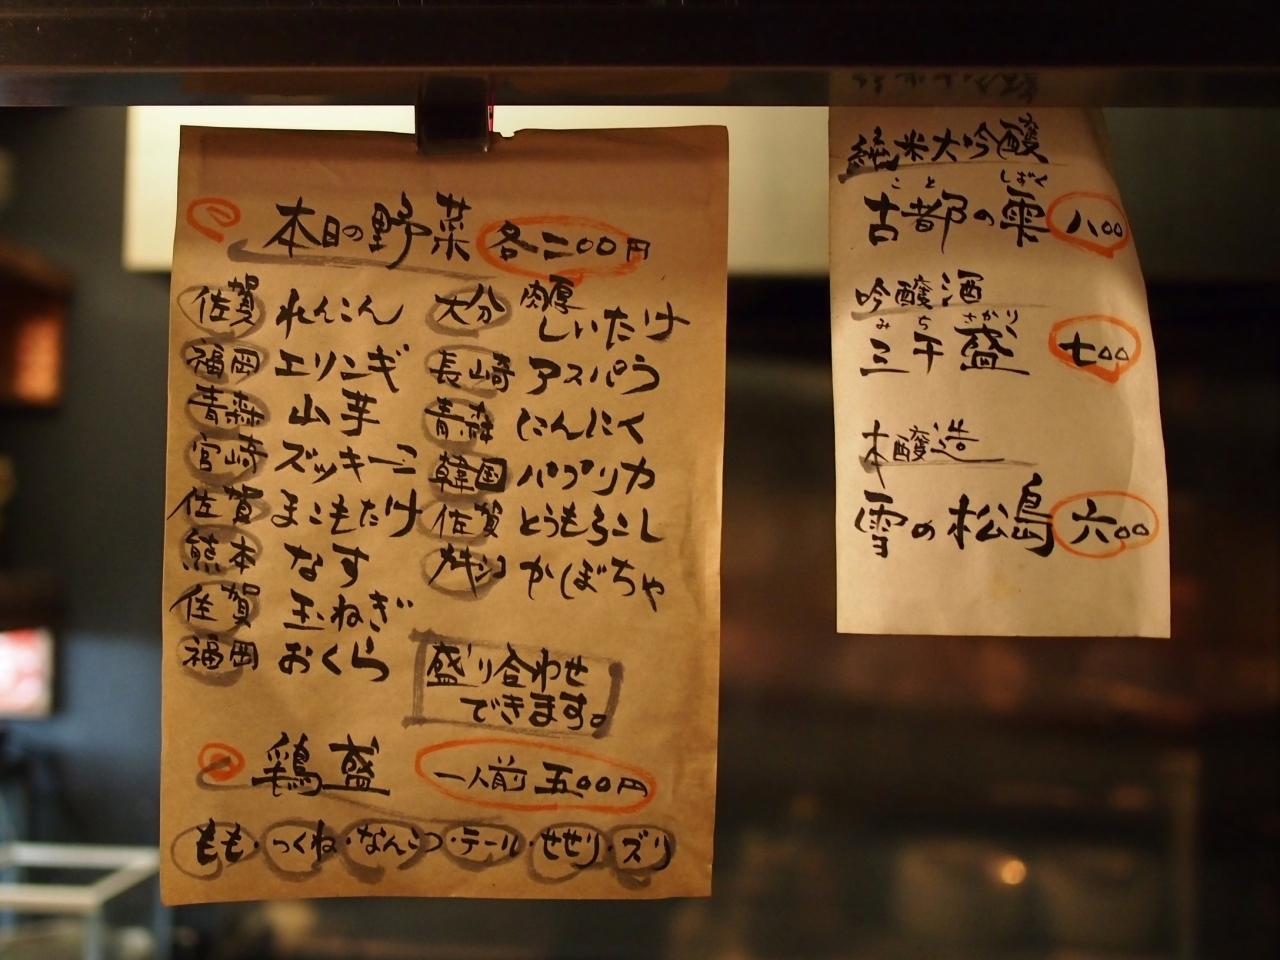 本日の野菜 各二〇〇円
佐賀 れんこん
福岡 エリンギ
青森 山芋
宮崎 ズッキーニ
佐賀 まこもたけ
熊本 なす
佐賀 玉ねぎ
福岡 おくら
大分 肉厚しいたけ
長崎 アスパラ
青森 にんにく
韓国 パプリカ
佐賀 とうもろこし
メキシコ かぼちゃ
盛り合わせ
できます。
鶏盛 一人前 五〇〇円
もも・つくね・なんこつ・テール・せせり・ズリ
純米大吟醸
こと しずく
古都の雫 八〇〇
吟醸酒
みち さかり
三千盛 七〇〇
本醸造
雪の松島 六〇〇